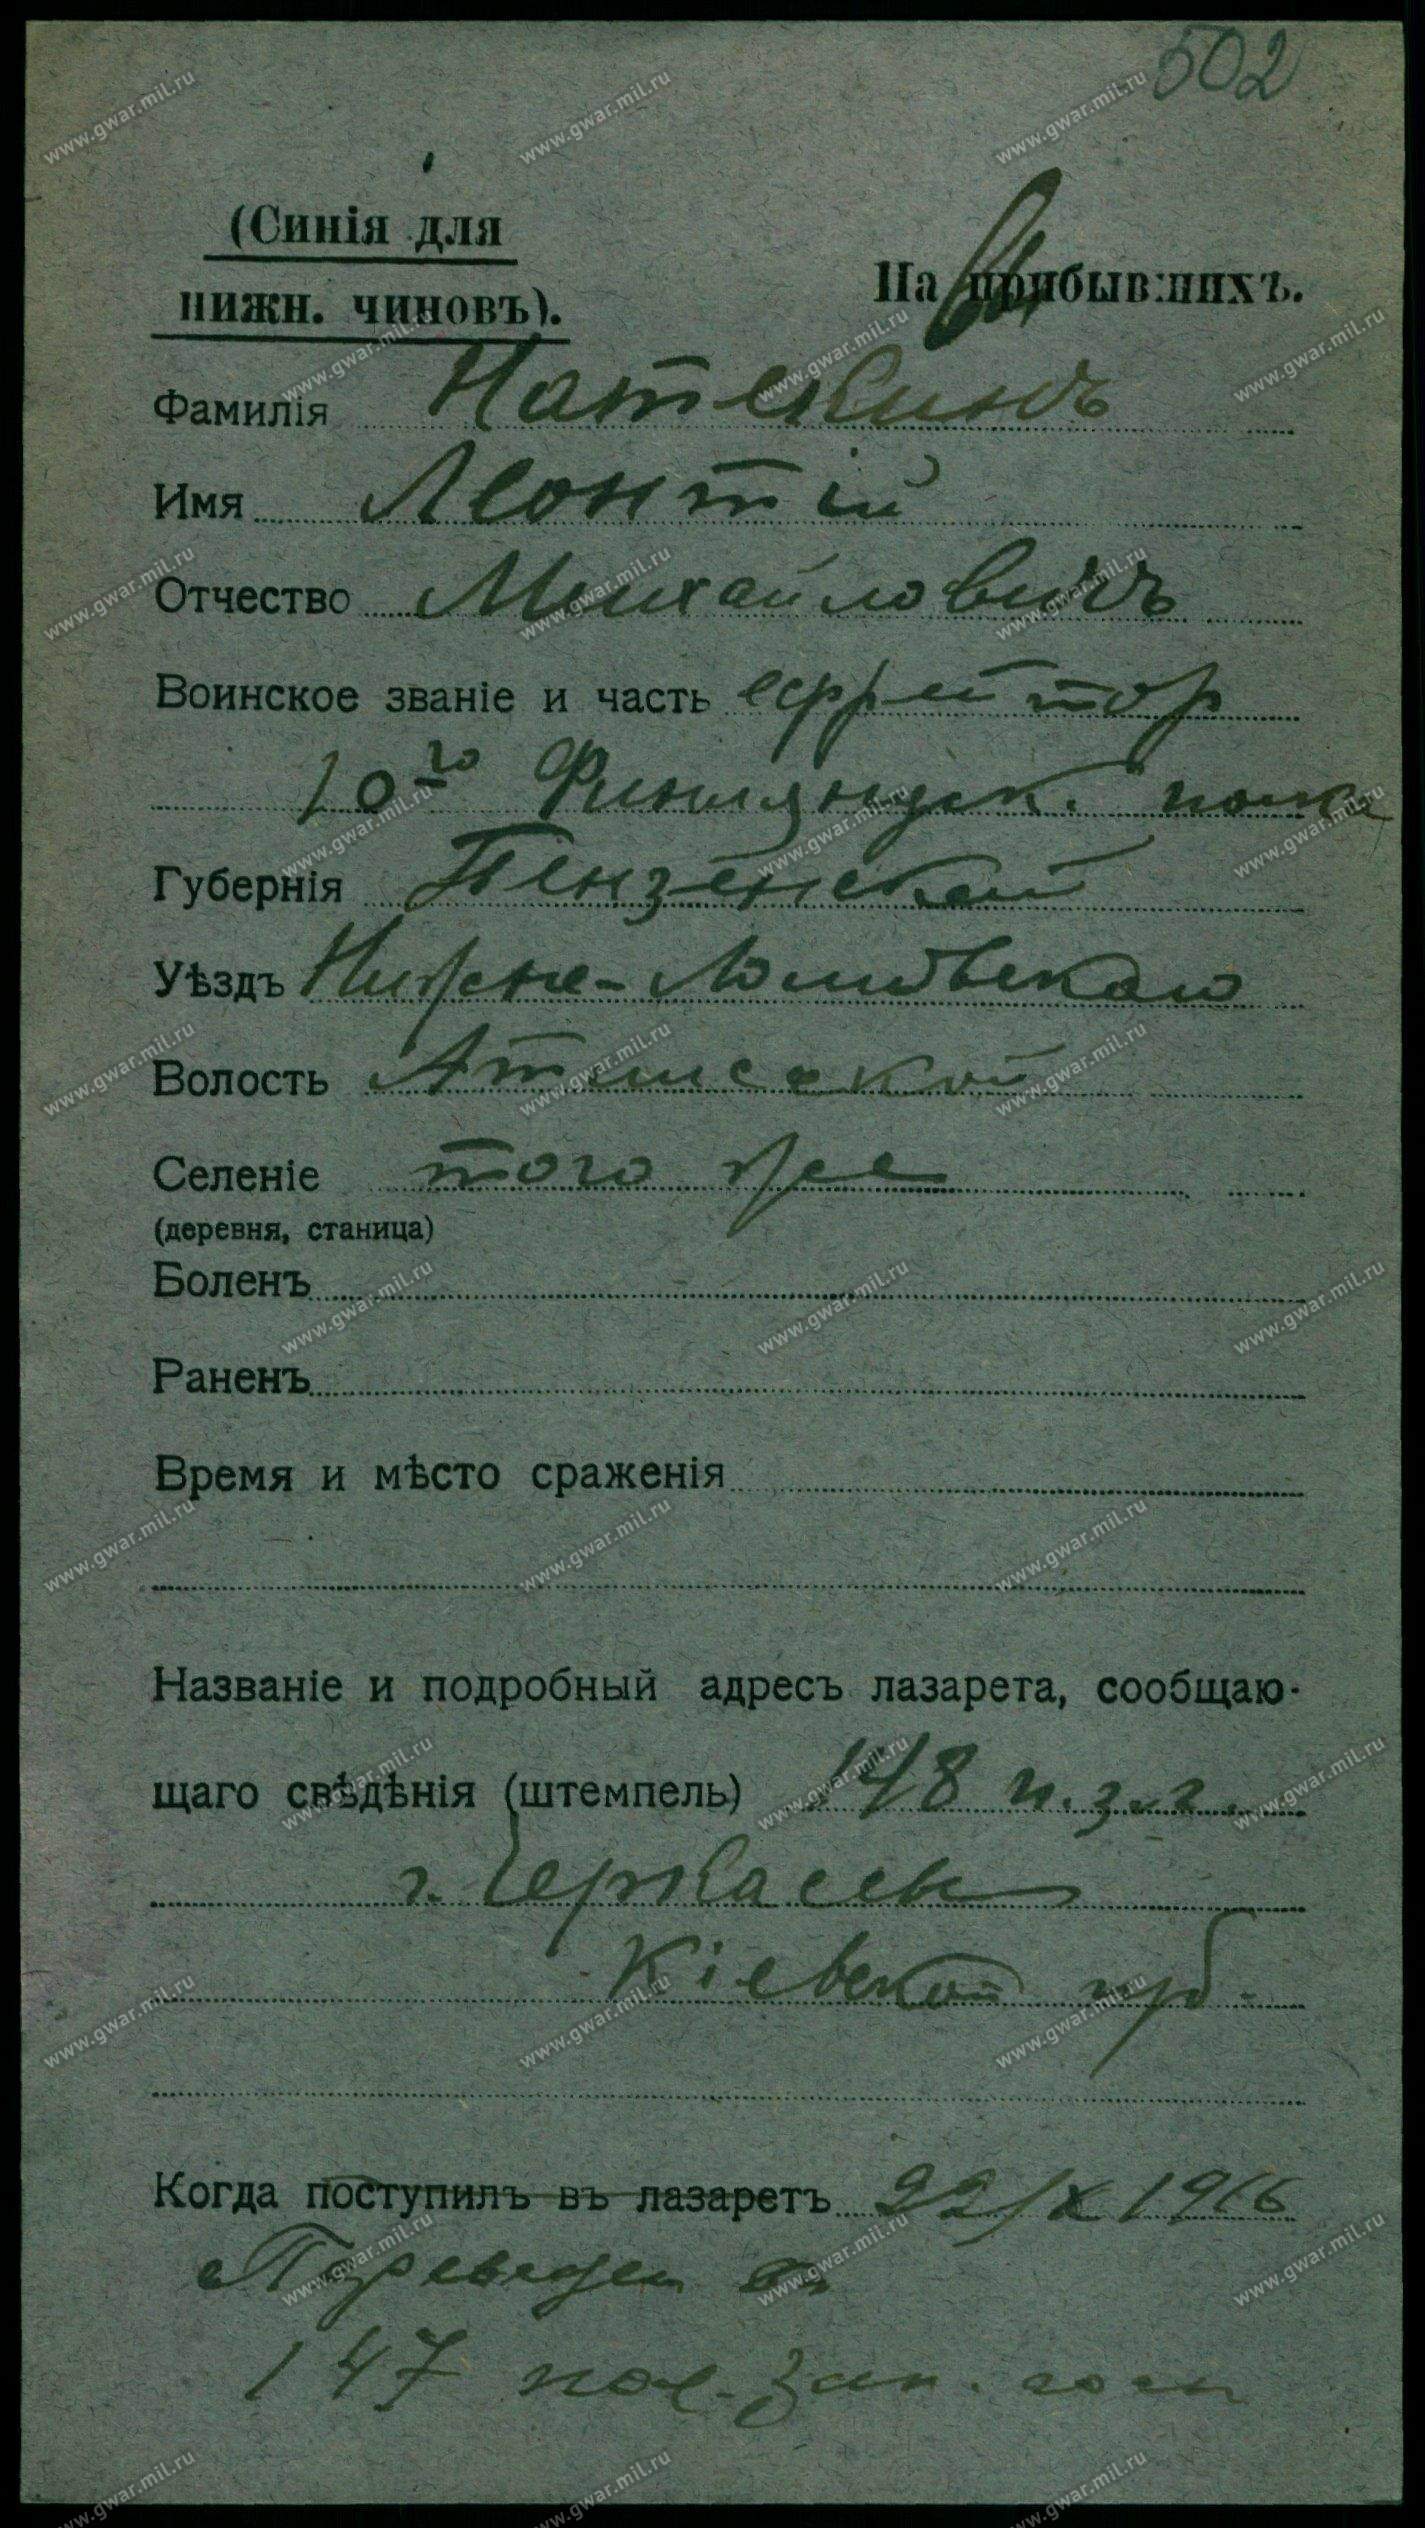 502
(Синія для
нижн. чиновъ).
На прибывшихъ.
Фамилія Натекинъ
Имя Леонтій
Отчество Михайловичъ
Воинское званіе и часть ефрейтор
10го Финляндск. полка
Губернія Пензенской
Уѣздъ Нижне-Ломовскаго
Волость Атмисской
Селеніе того же
(деревня, станица)
Боленъ
Раненъ
Время и мѣсто сраженія
Названіе и подробный адресъ лазарета, сообщаю-
щаго свѣдѣнія (штемпель) 148 п.з.г.
г. Черкассы
Кіевской губ.
Когда поступилъ въ лазаретъ 22/X 1916
Переведен в
147 пол. зап. госп
www.gwar.mil.ru